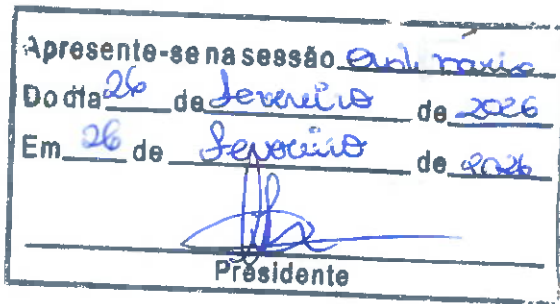 Apresente-se na sessão Ordinária
Do dia 26 de fevereiro de 2026
Em 26 de fevereiro de 2026
Presidente